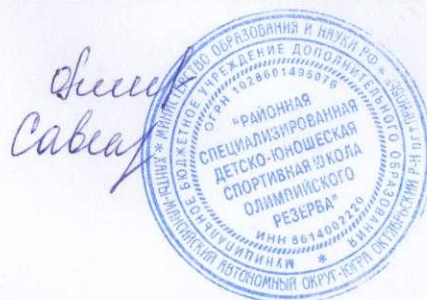 МИНИСТЕРСТВО ОБРАЗОВАНИЯ И НАУКИ РФ *
ХАНТЫ-МАНСИЙСКИЙ АВТОНОМНЫЙ ОКРУГ-ЮГРА ОКТЯБРЬСКИЙ Р-Н
МУНИЦИПАЛЬНОЕ БЮДЖЕТНОЕ УЧРЕЖДЕНИЕ ДОПОЛНИТЕЛЬНОГО ОБРАЗОВАНИЯ *
ОГРН 1028601495076
"РАЙОННАЯ
СПЕЦИАЛИЗИРОВАННАЯ
ДЕТСКО-ЮНОШЕСКАЯ
СПОРТИВНАЯ ШКОЛА
ОЛИМПИЙСКОГО
РЕЗЕРВА"
ИНН 8614002220